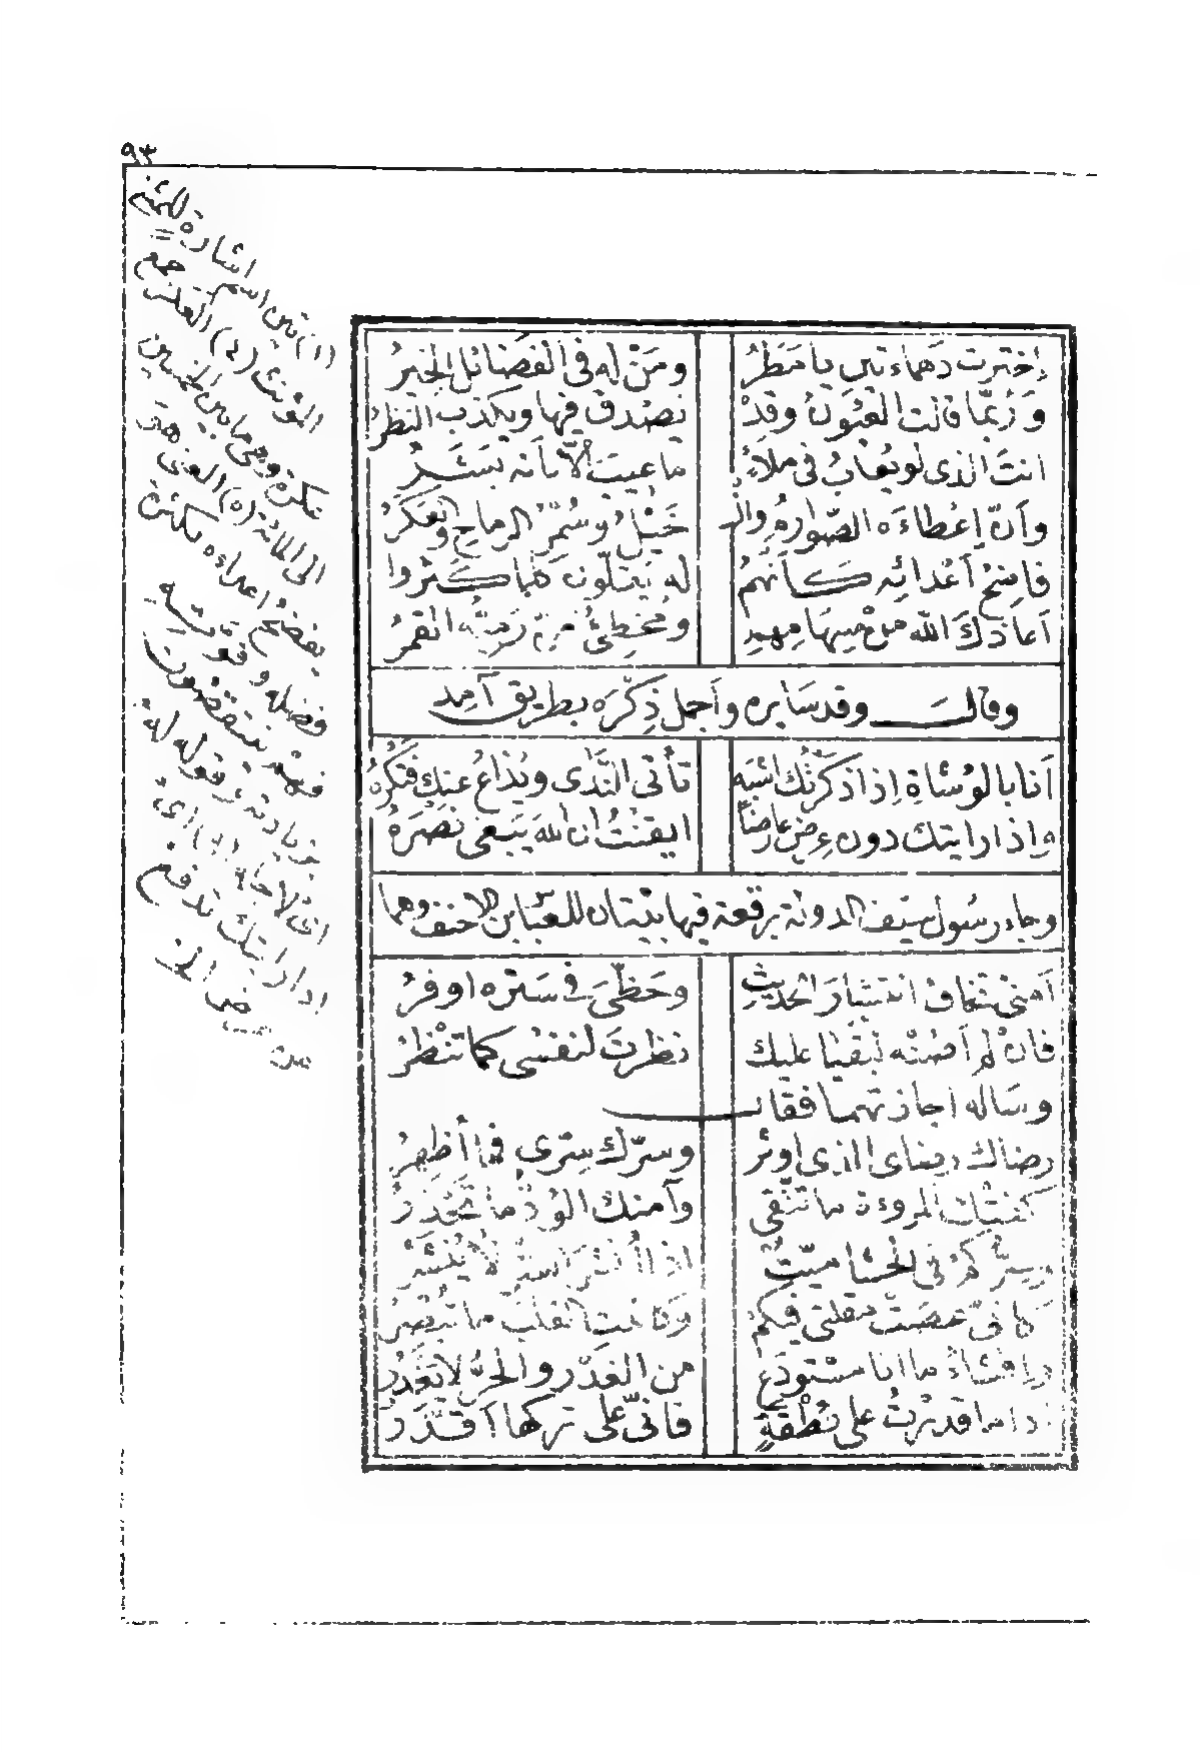 ٩٣
إخترت دهماء تين يا مطرُ ومَنْ له في الفضائل الخيرُ
وَرُبّما فانت العُيونُ وقدْ نصْدق فيها ويكذب النظرُ
انتَ الذى لو يُعابُ فى ملاءٍ ما عيبَ الّا بأنه بَشَرُ
وأنّ إعْطاءَه الصّوارمُ والـ خَيْلُ وسُمْرُ الرماحِ والعَكَرُ
فاضِحُ أعْدائِه كأنّهمُ له يَقلّون كلما كَثُروا
أعاذكَ الله من سهامهم ومُخطِئٌ من رَمِيُّه القمرُ
وقالَ وقد سَايره وأجمل ذِكْرَه بطريق آمِد
أنا بالوُشاةِ إذا ذكرْتُك اشبَه تأتى النَّدى ويُذاعُ عنك فتكْرَهُ
واذا رايتك دون عِرضٍ عارضاً ايقنْتُ ان الله يَبغى نَصْرَهُ
وجاء رسُول سيْف الدولة برقعة فيها بيْتان للعبّاس بن الاحنف وهما
أمنى تخاف انتشارَ الحديثِ وحَظّىَ فى سَتره اوفرُ
فان لم أصُنْه لبُقْيا عليك نظرتَ لنفسى كما تنْظرُ
وسَاله اجازتهما فقال
رضاك رضاى الذى اوثر وسرّك سِرى فما أظهرُ
كفتْك المروءة ما تتّقى وآمنك الوُدّ ما تَحْذرُ
وسِرُّكمُ فى الحشا ميّتٌ اذا اُنشرَ السرُّ لا يُنْشَرُ
كأنّى عصَتْ مقلتى فيكمُ وكاتمت القلبَ ما تُبْصِرُ
وإفشاءُ ما انا مستودَعٌ من الغَدْر والحرُّ لا يَغْدُرُ
اذا ما قدرْتُ على نُطْقةٍ فانّى على تركها أقْدَرُ
(١) تين اسم اشارة للمثنى
المؤنث (٤) العكر جمع
عكرة وهى ما بين الخمسين
الى المائة (٥) المعنى هو
يفضح اعداءه بكثرة
فضله وقوّته
فهم ينقصون
بزيادته وقوله له
اى لاجله اى
اذا رايتك تدفع
عن عرض